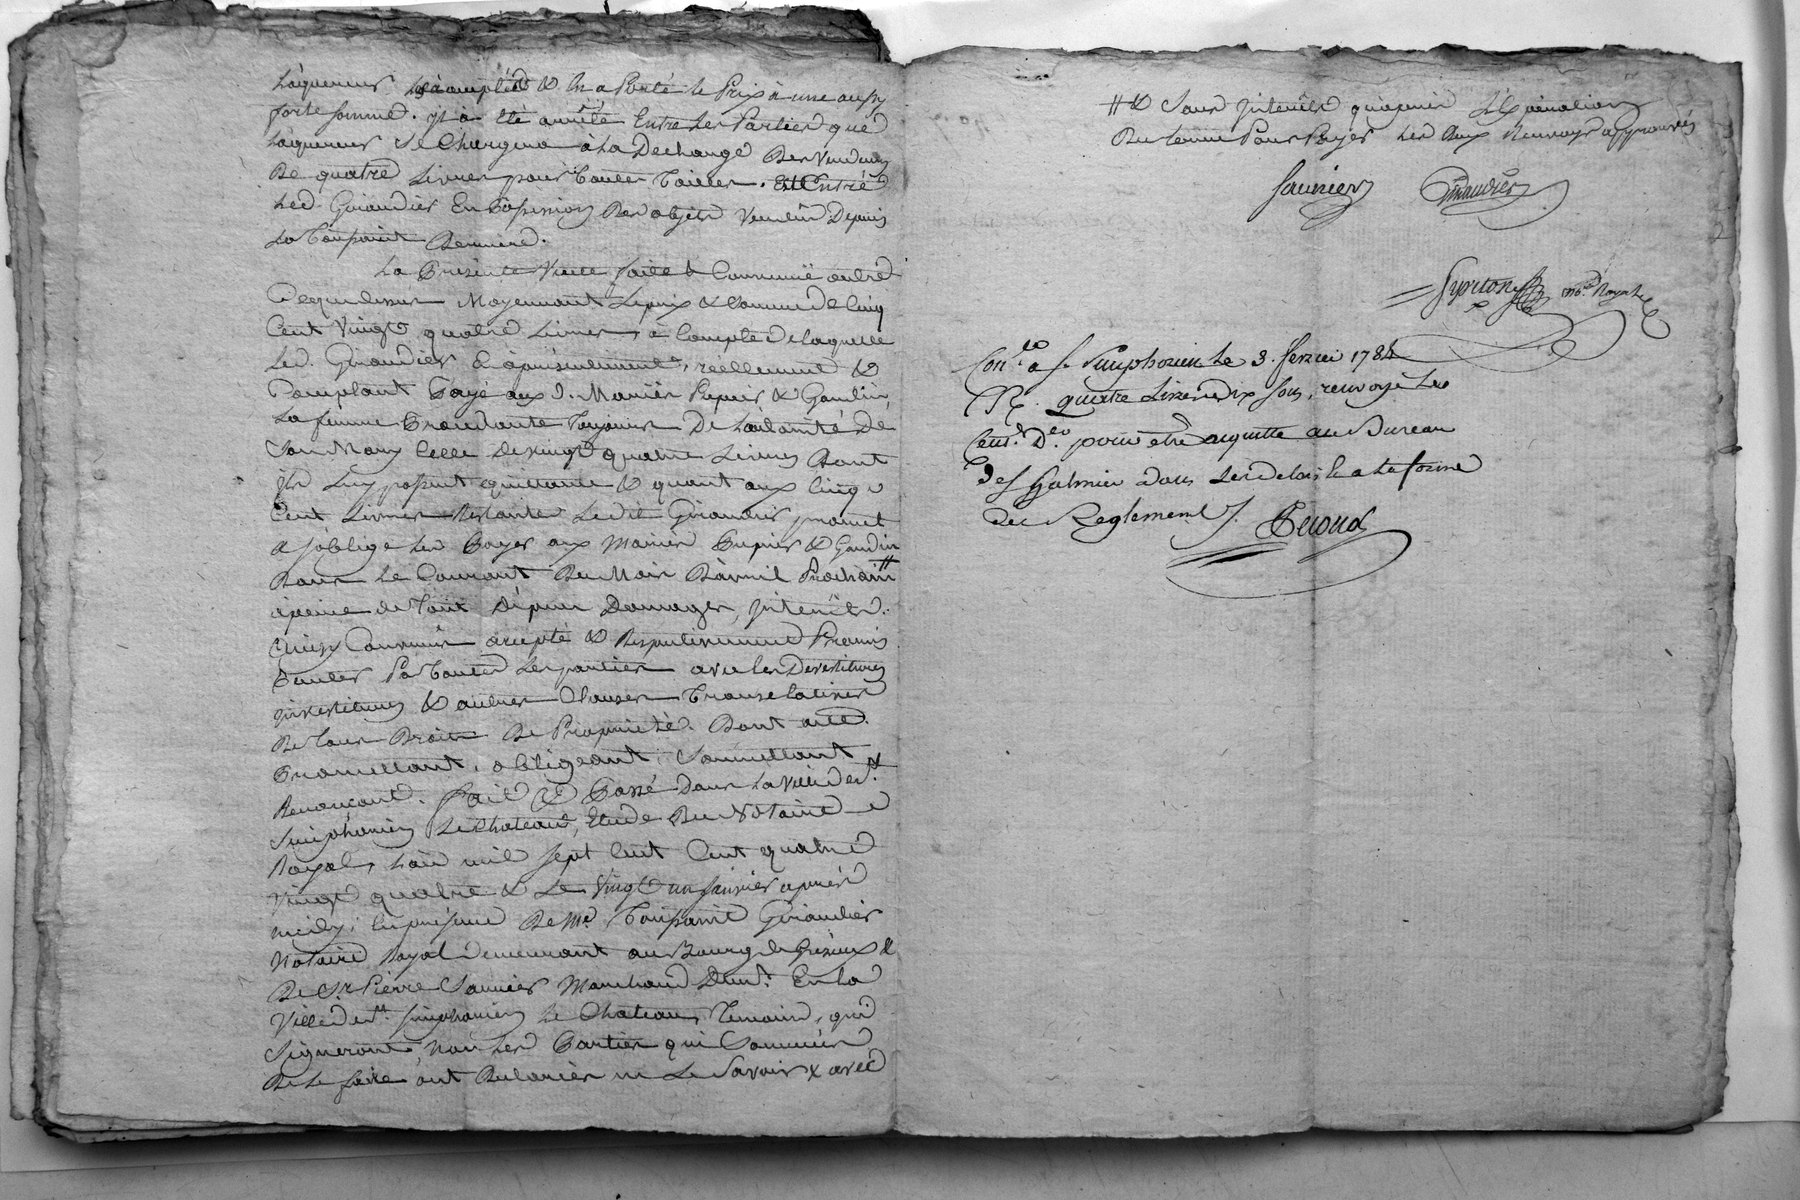 laquereur & En a Porté le Prix à une aussy
forte somme. Il a Eté arrêté Entre Les Parties que
laquereur se Chargera à La Decharge Des Vendeurs
De quatre Livres pour toutes Tailles. Est Entré
Led. Giraudier En Possession Des objets Vendus Depuis
La Toussaint Derniere.
La Presente Vente faitte & Convenuë outre
Cequedessus Moyennant Leprix & Somme de Cinq
Cent Vingt quatre Livres, à Compte de laquelle
Led. Giraudier a présentement, réellement &
Comptant Payé aux d. Mariés Pupier & Gaudin
La femme Procedante Toujours De L'autorité De
Son Mary Celle de vingt quatre Livres Dont
ils Luy passent quittance & quant aux Cinq
Cent Livres Restantes Ledit Giraudier promet
& s'oblige Les Payer aux Mariés Pupier & Gaudin
Dans Le Courant Du Mois D'avril Prochain #
àpeine de Tous Dépens Domages, Interêts.
Ainsy Convenu accepté & Respectivement Promis
Par Toutes Les parties avec Les Devestitures
investitures & autres Clauses Translatives
De Tous Droits De Propriété. Dont acte.
Promettant, obligeant, Soumettant
Renonçant. Fait & Passé Dans La Ville de St.
Simphorien Le Chateau, Etude Du Notaire
Royal, L'an mil sept Cent quatre
Vingt quatre & Le Vingt un Janvier après
midy, En présence De Me. Toussaint Giraudier
Notaire Royal Demeurant au Bourg de Grésieux &
De Sr. Pierre Saunier Marchand Demt. En La
Ville de St. Simphorien Le Chateau, Temoins, qui
Signeront Non Les Parties qui Sommées
De Le faire ont Declarées ne Le Savoir x avec
# & Sans Interêts qu'après L'Expiration
Du terme Pour Payer Les Deux Renvoys approuvés
Saunier Giraudier
Royal
Conlé a St Simphorien Le 3. fevrier 1784
R. quatre Livres dix sols, renvoyé Le
Cent. D. pour être acquitté au Bureau
de St Galmier dans Les delais & a La forme
des Reglements.